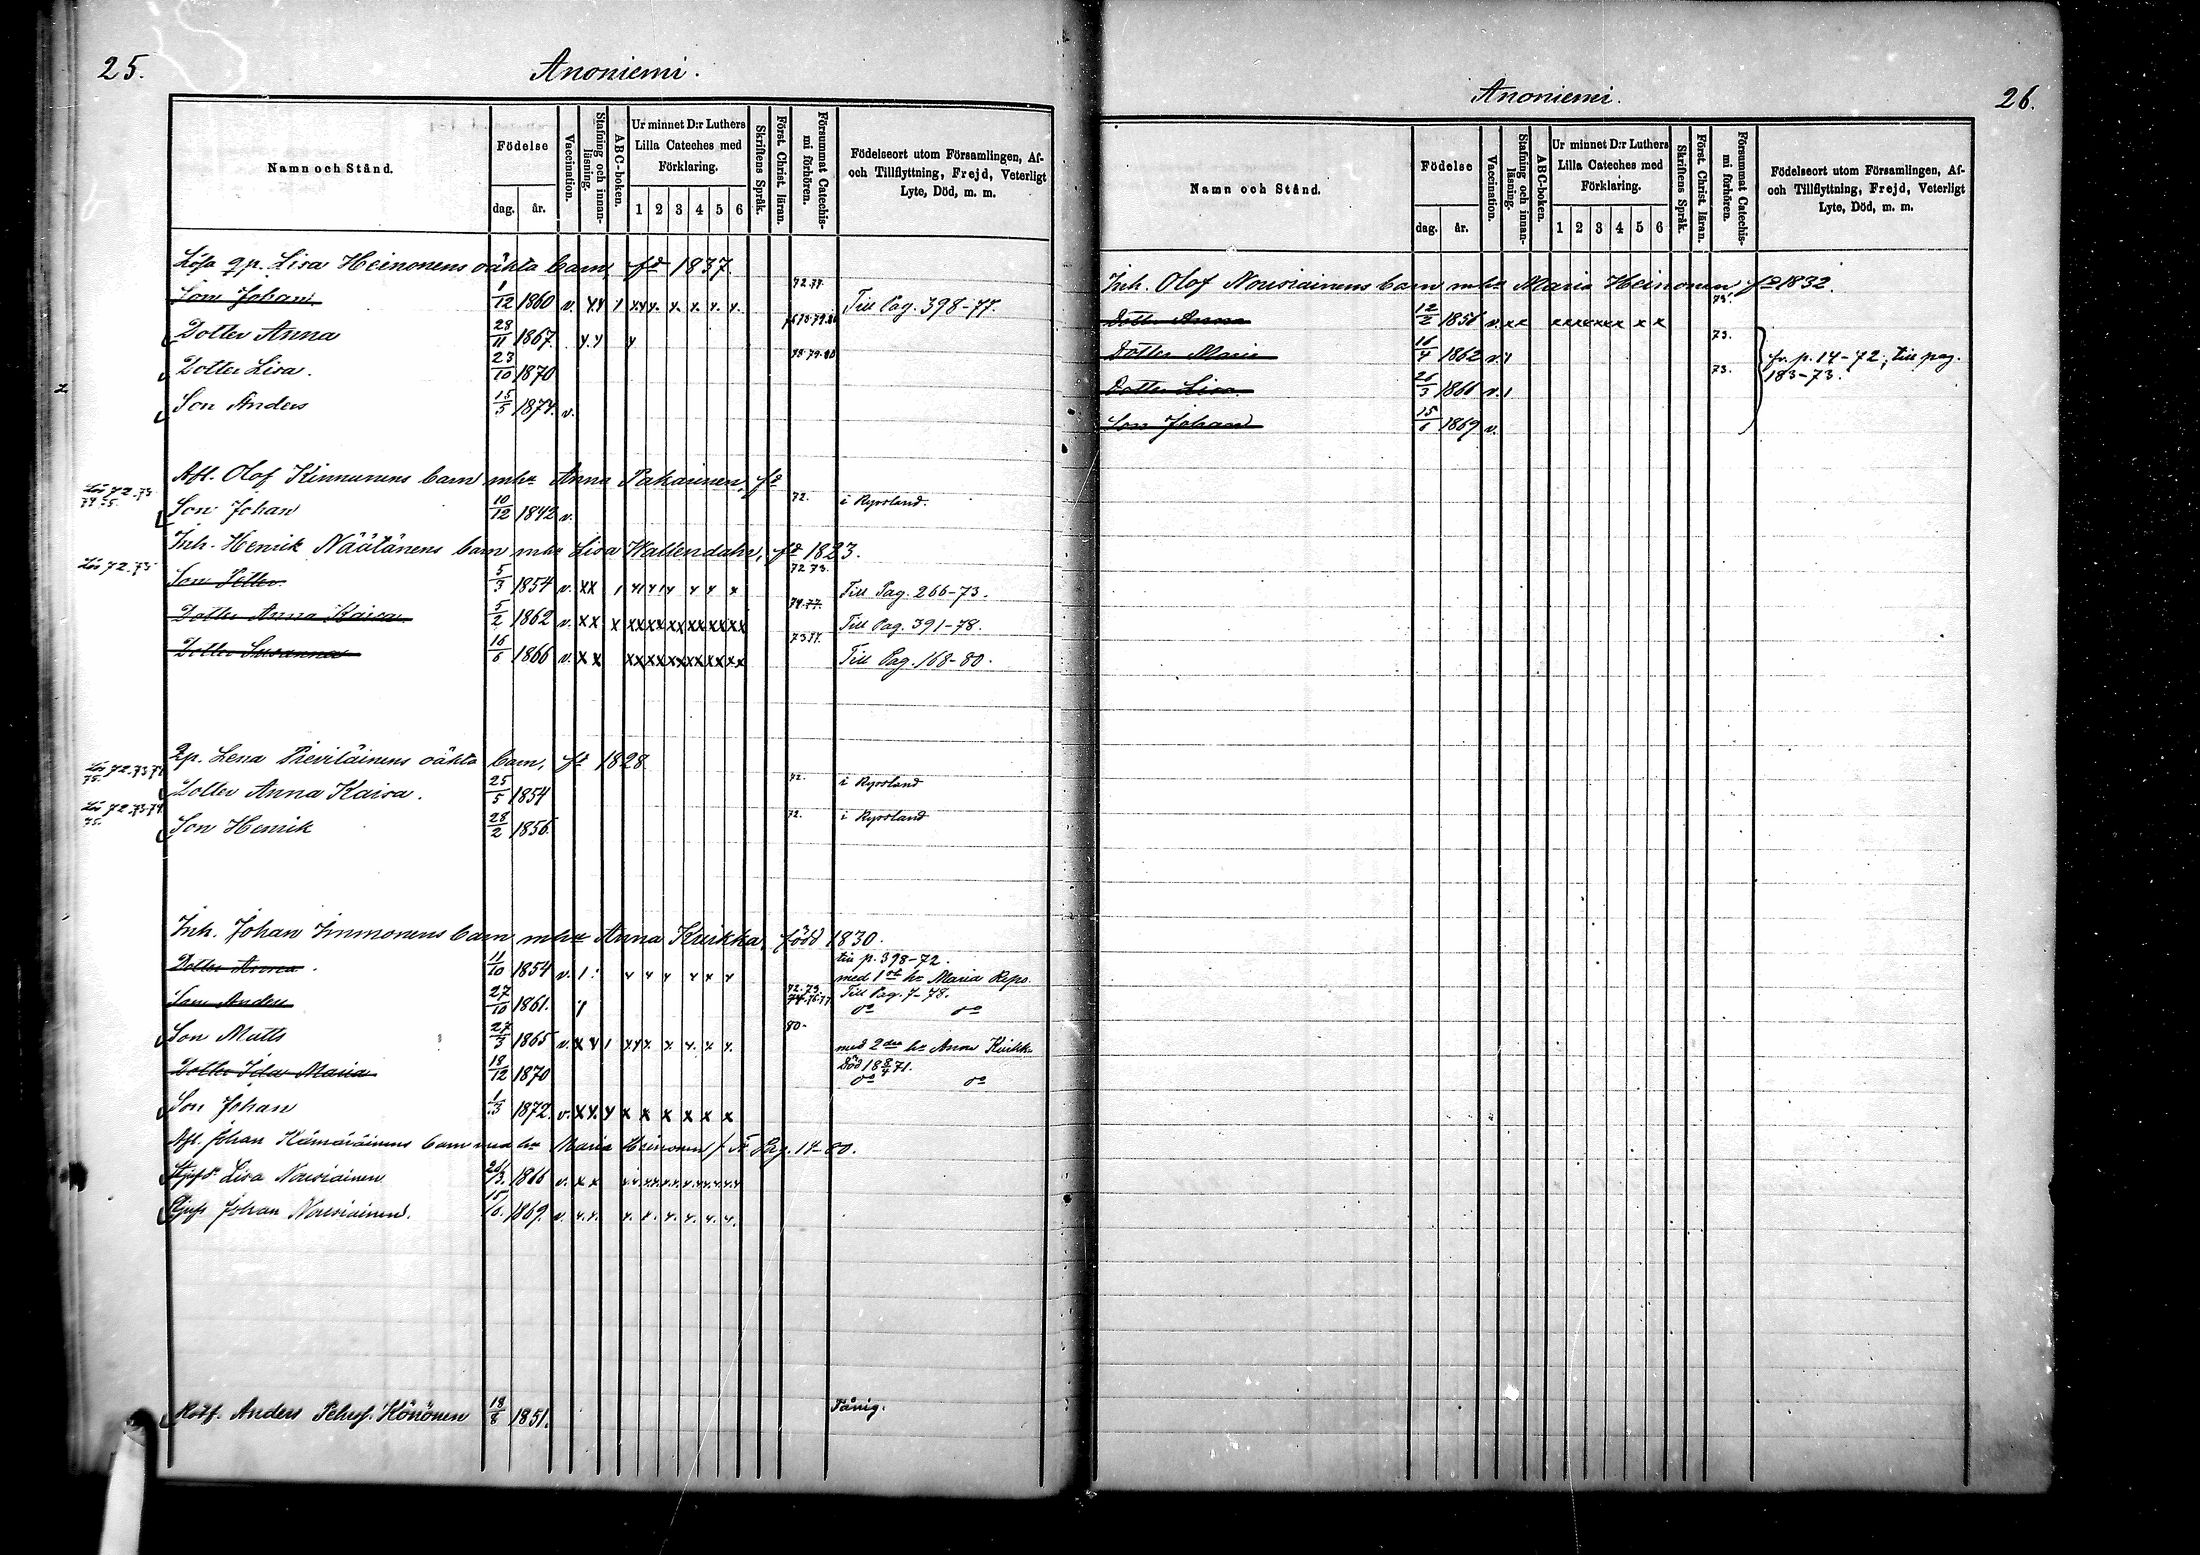 25.
Anoniemi.
Namn och Stånd.
Födelse
dag.
år.
Vaccination.
Stafning och innan-läsning.
ABC-boken.
Ur minnet D:r Luthers Lilla Cateches med Förklaring.
1 2 3 4 5 6
Skriftens Språk.
Först. Christ. läran.
Försummat Catechismi förhören.
Födelseort utom Församlingen, Af- och Tillflyttning, Frejd, Veterligt Lyte, Död, m. m.
Lösa qp. Lisa Heinonens oäkta barn, fd 1837
Son Johan 1/12 1860 v. 72.77. Till Pag. 398-77.
Dotter Anna 28/11 1867
Dotter Lisa. 23/10 1870 78.79.80
Son Anders 15/5 1874 v.
Afl. Olof Kinnunens barn mhu Anna Pakarinen, fd
Son Johan 10/12 1842 v. 72. i Ryssland.
Inh. Henrik Näätänens barn mhu Lisa Wallendahr, fd 1823.
Son Petter 5/3 1854 v. xx 72 73. Till Pag. 266-73.
Dotter Anna Kaisa 5/2 1862 v. xx x xx xx xx xx xx xx 74.77. Till Pag. 391-78.
Dotter Susanna 16/6 1866 v. x x xx xx xx xx xx xx 73.77. Till Pag. 168-80.
Qp. Lena Pieviläinens oäkta barn, fd 1828
Dotter Anna Kaisa. 25/5 1854 72. i Ryssland
Son Henrik 28/2 1856 72. i Ryssland
Inh. Johan Immonens barn mhu Anna Kuikka, född 1830.
Dotter Anna. 11/10 1854 v. till p. 398-72.
med 1sta hu Maria Repo.
Son Anders 27/10 1861. 72.73. 74.76.77 Till Pag. 7-78.
do do
Son Matts 27/3 1865 v. 80.
med 2dra hu Anna Kuikka
Dotter Ida Maria 18/12 1870 Död 18 8/4 71.
do do
Son Johan 1/3 1872. v. x x. x x x x x x
Afl. Johan Hämäläinens barn med hu Maria Heinonen, fr. Pag. 14-80.
Styfd. Lisa Nousiainen 26/3 1866 v. x x
Styfs. Johan Nousiainen. 15/6 1869. v.
Rotf. Anders Pehrs. Könönen 18/8 1851. Fånig.
Anoniemi.
26.
Namn och Stånd.
Födelse
dag.
år.
Vaccination.
Stafning och innan-läsning.
ABC-boken.
Ur minnet D:r Luthers Lilla Cateches med Förklaring.
1 2 3 4 5 6
Skriftens Språk.
Först. Christ. läran.
Försummat Catechismi förhören.
Födelseort utom Församlingen, Af- och Tillflyttning, Frejd, Veterligt Lyte, Död, m. m.
Inh. Olof Nousiainens barn mhu Maria Heinonen, fd 1832.
Dotter Anna 12/2 1856 v. xx 73.
Dotter Maria 16/4 1862 v. 73. fr. p. 14-72, till pag.
Dotter Lisa 26/3 1866 v. 73. 183-73.
Son Johan 15/6 1869 v.